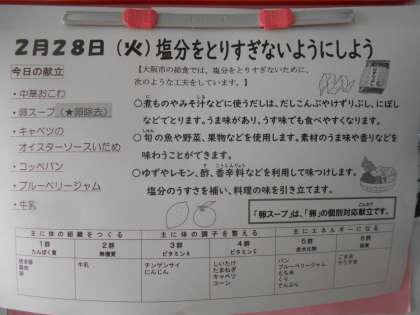 2月28日（火）塩分をとりすぎないようにしよう
今日の献立
・中華おこわ
・卵スープ（★卵除去）
・キャベツの
オイスターソースいため
・コッペパン
・ブルーベリージャム
・牛乳
【大阪市の給食では、塩分をとりすぎないために、
次のような工夫をしています。】
○煮ものやみそ汁などに使うだしは、だしこんぶやけずりぶし、にぼし
などでとります。うま味があり、うす味でも食べやすくなります。
○旬の魚や野菜、果物などを使用します。素材のうま味や香りなどを
味わうことができます。
○ゆずやレモン、酢、香辛料などを利用して味つけします。
塩分のうすさを補い、料理の味を引き立てます。
「卵スープ」は、「卵」の個別対応献立です。
主に体の組織をつくる 主に体の調子を整える 主にエネルギーになる
1群 2群 3群 4群 5群 6群
たんぱく質 無機質 ビタミンA ビタミンC 炭水化物 脂質
焼き豚
鶏肉
卵
牛乳
チンゲンサイ
にんじん
しいたけ
たまねぎ
キャベツ
コーン
パン
ブルーベリージャム
もち米
くり
でんぷん
ごま油
サラダ油